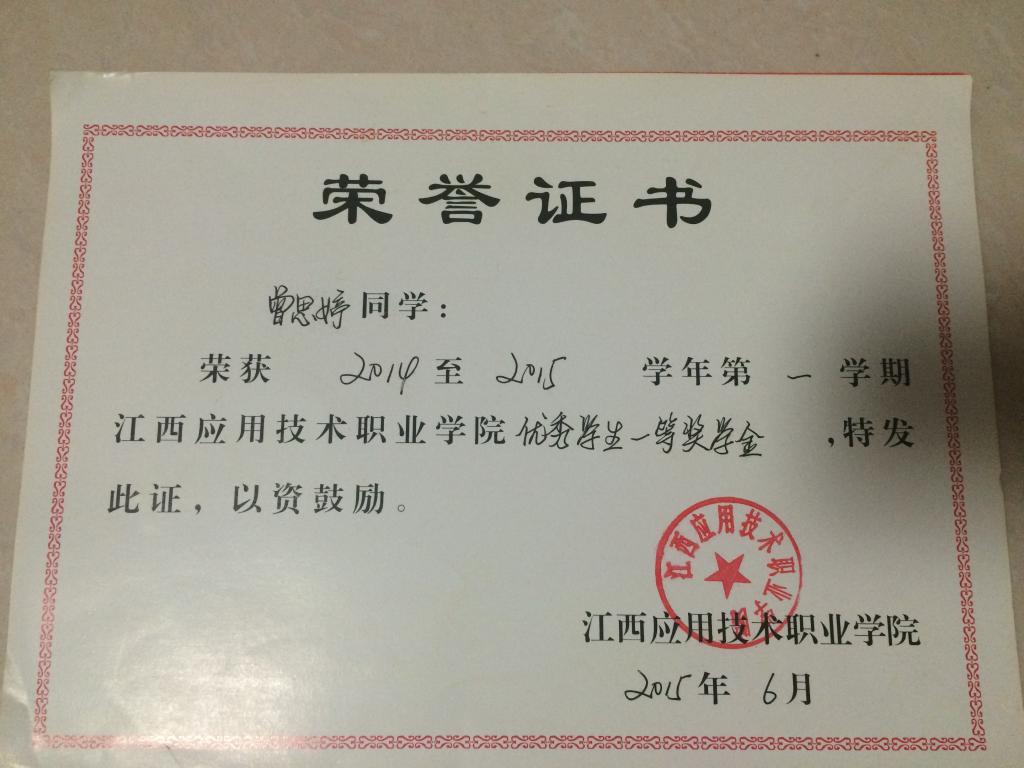 荣誉证书
曾思婷同学:
荣获 2014 至 2015 学年第 一 学期
江西应用技术职业学院优秀学生一等奖学金,特发
此证，以资鼓励。
江西应用技术职业学院
江西应用技术职业学院
2015年 6月